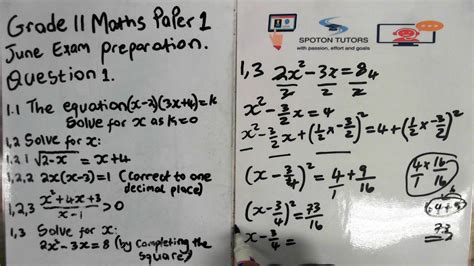 Grade 11 Maths Paper 1
June Exam preparation.
Question 1.
1.1 The equation (x-2)(3x+4)=k
Solve for x as k=0
1,2 Solve for x:
1,2,1 √2-x = x+4
1,2,2 2x(x-3)=1 (Correct to one
decimal place)
1,2,3 x²+4x+3/x-1 >0
1,3 Solve for x:
2x²-3x=8 (by Completing the
Square)
SPOTON TUTORS
with passion, effort and goals
1,3 2x²/2 - 3x/2 = 8/2 4
x² - 3/2 x = 4
x² - 3/2 x + (1/2 x -3/2)² = 4 + (1/2 x -3/2)²
(x - 3/4)² = 4/1 + 9/16
(x - 3/4)² = 73/16
x - 3/4 =
4/1 x 16/16
73